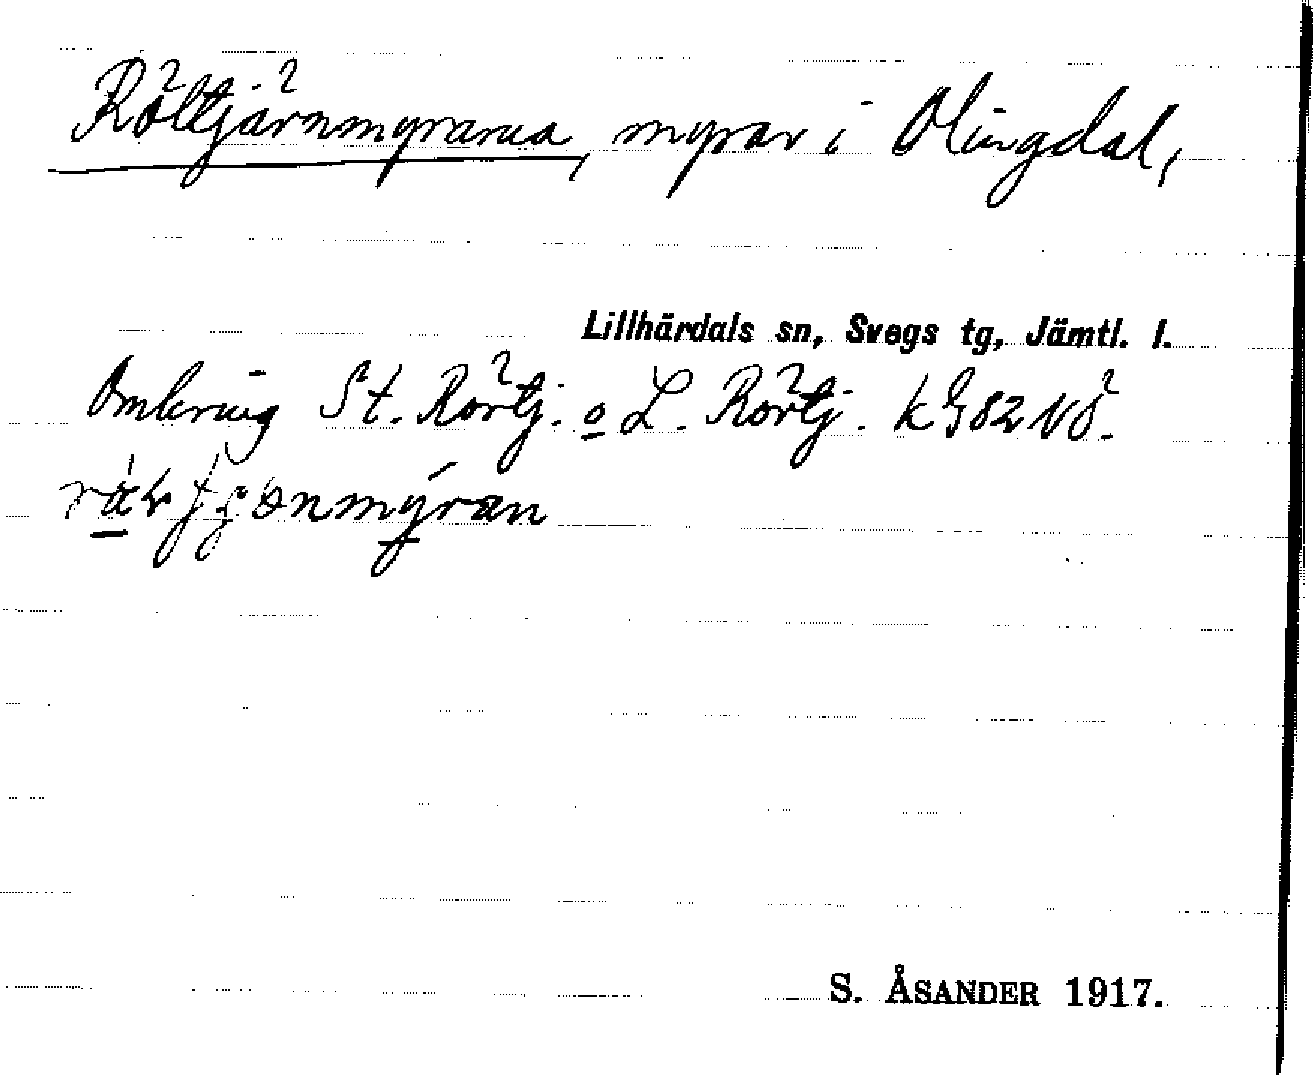 Röltjärnmyrarna, myrar i Olingdal,
Lillhärdals sn, Svegs tg, Jämtl. l.
Omkring St. Rörtj. o L. Rörtj. k G82NÖ.
S. ÅSANDER 1917.